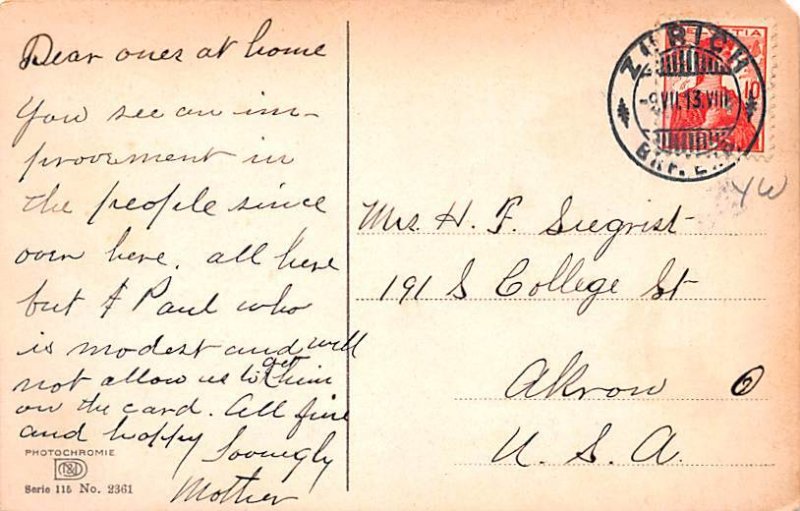 Dear ones at home
You see an im-
provement in
the people since
over here. all here
but & Paul who
is modest and will
not allow us to get him
on the card. All fine
and happy Lovingly
Mother
PHOTOCHROMIE
Serie 115 No. 2361
HELVETIA
10
ZÜRICH
-9.VII.13.VIII
Mrs. H. F. Siegrist
191 S College St
Akron O
U. S. A.
YW